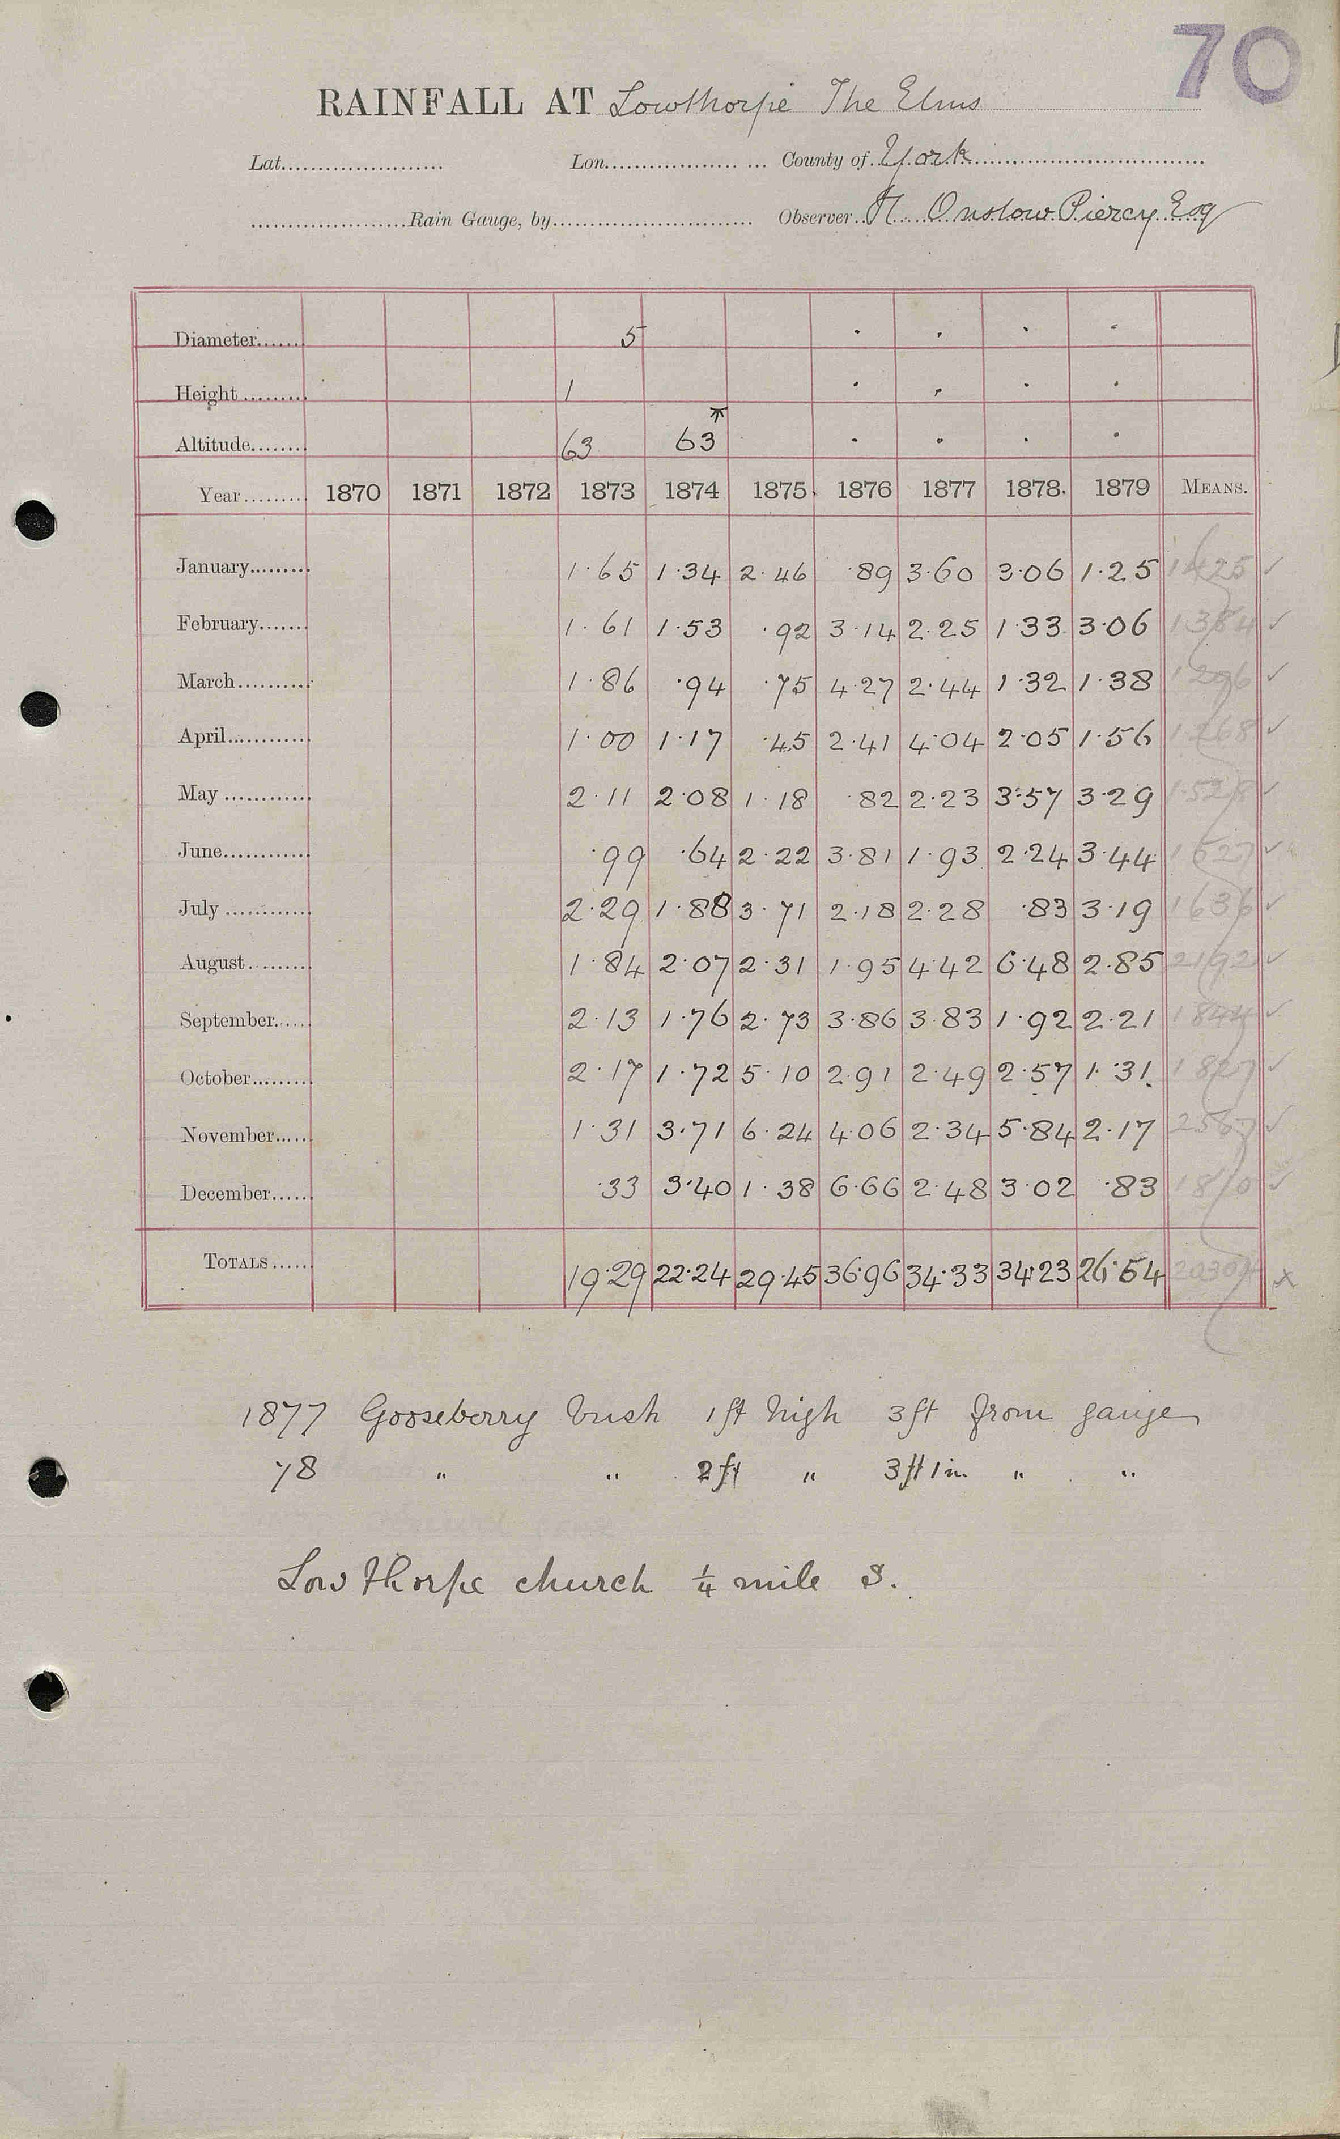 70
RAINFALL AT Lowthorpe The Elms
Lat. Lon. County of York
Rain Gauge, by Observer H Onslow Piercy Esq
Diameter 5 · · · ·
Height 1 · · · ·
Altitude 63 63 · · · ·
Year 1870 1871 1872 1873 1874 1875 1876 1877 1878 1879 MEANS.
January 1·65 1·34 2·46 ·89 3·60 3·06 1·25 1425 ✓
February 1·61 1·53 ·92 3·14 2·25 1·33 3·06 1384 ✓
March 1·86 ·94 ·75 4·27 2·44 1·32 1·38 1296 ✓
April 1·00 1·17 ·45 2·41 4·04 2·05 1·56 1268 ✓
May 2·11 2·08 1·18 ·82 2·23 3·57 3·29 1·528 ✓
June ·99 ·64 2·22 3·81 1·93 2·24 3·44 1527 ✓
July 2·29 1·88 3·71 2·18 2·28 ·83 3·19 1636 ✓
August 1·84 2·07 2·31 1·95 4·42 6·48 2·85 2192 ✓
September 2·13 1·76 2·73 3·86 3·83 1·92 2·21 1844 ✓
October 2·17 1·72 5·10 2·91 2·49 2·57 1·31 1827 ✓
November 1·31 3·71 6·24 4·06 2·34 5·84 2·17 2567 ✓
December ·33 3·40 1·38 6·66 2·48 3·02 ·83 1810 ✓
TOTALS 19·29 22·24 29·45 36·96 34·33 34·23 26·54 20304 x
1877 Gooseberry bush 1ft high 3ft from gauge
78 " " 2ft " 3ft 1in " "
Lowthorpe church ¼ mile S.